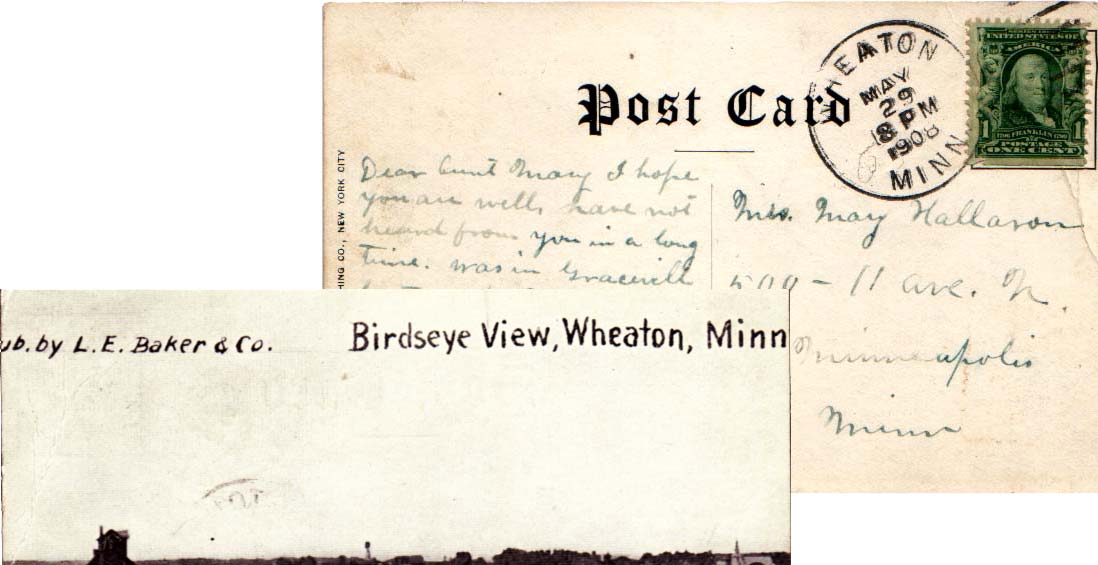 WHEATON
MAY
29
8 PM
1908
MINN
SERIES 1902
UNITED STATES OF
AMERICA
1 1706 FRANKLIN 1790 1
POSTAGE
ONE CENT
Post Card
HING CO., NEW YORK CITY
Dear Aunt Mary I hope
you are well, have not
heard from you in a long
time. was in Graceville
Mrs. May Hallaron
500 - 11 ave. N.
Minneapolis
Minn
ub. by L. E. Baker & Co.
Birdseye View, Wheaton, Minn